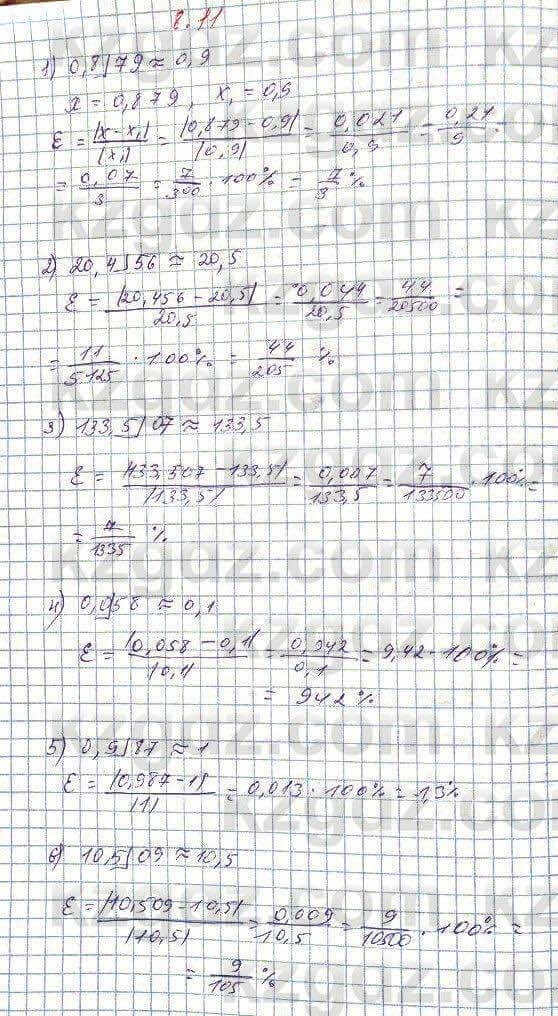 8.11
1) 0,8⌋79 ≈ 0,9
x = 0,879, x₁ = 0,9
ε = |x - x₁| / |x₁| = |0,879 - 0,9| / |0,9| = 0,021 / 0,9 = 0,21 / 9 =
= 0,07 / 3 = 7 / 300 · 100% = 7/3 %
2) 20,4⌋56 ≈ 20,5
ε = |20,456 - 20,5| / 20,5 = 0,044 / 20,5 = 44 / 20500 =
= 11 / 5125 · 100% = 44 / 205 %
3) 133,5⌋07 ≈ 133,5
ε = |133,507 - 133,5| / |133,5| = 0,007 / 133,5 = 7 / 133500 · 100% =
= 7 / 1335 %
4) 0,0⌋58 ≈ 0,1
ε = |0,058 - 0,1| / |0,1| = 0,942 / 0,1 = 9,42 · 100% =
= 942%
5) 0,9⌋87 ≈ 1
ε = |0,987 - 1| / |1| = 0,013 · 100% = 1,3%
6) 10,5⌋09 ≈ 10,5
ε = |10,509 - 10,5| / |10,5| = 0,009 / 10,5 = 9 / 10500 · 100% =
= 9 / 105 %
kzgdz.com